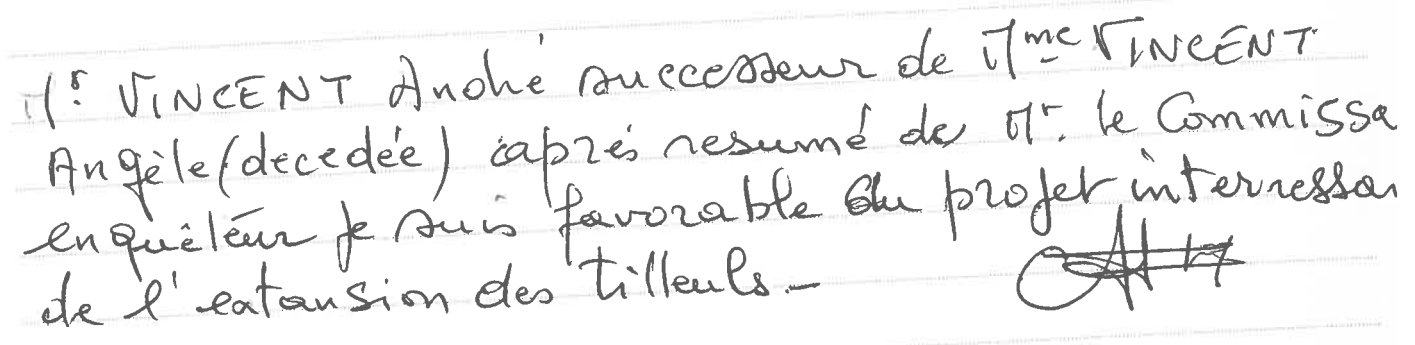 Mr VINCENT André successeur de Mme VINCENT
Angèle (decedée) aprés resumé de Mr. le Commissa
enquêteur je suis favorable du projet interressan
de l'extansion des tilleuls.-